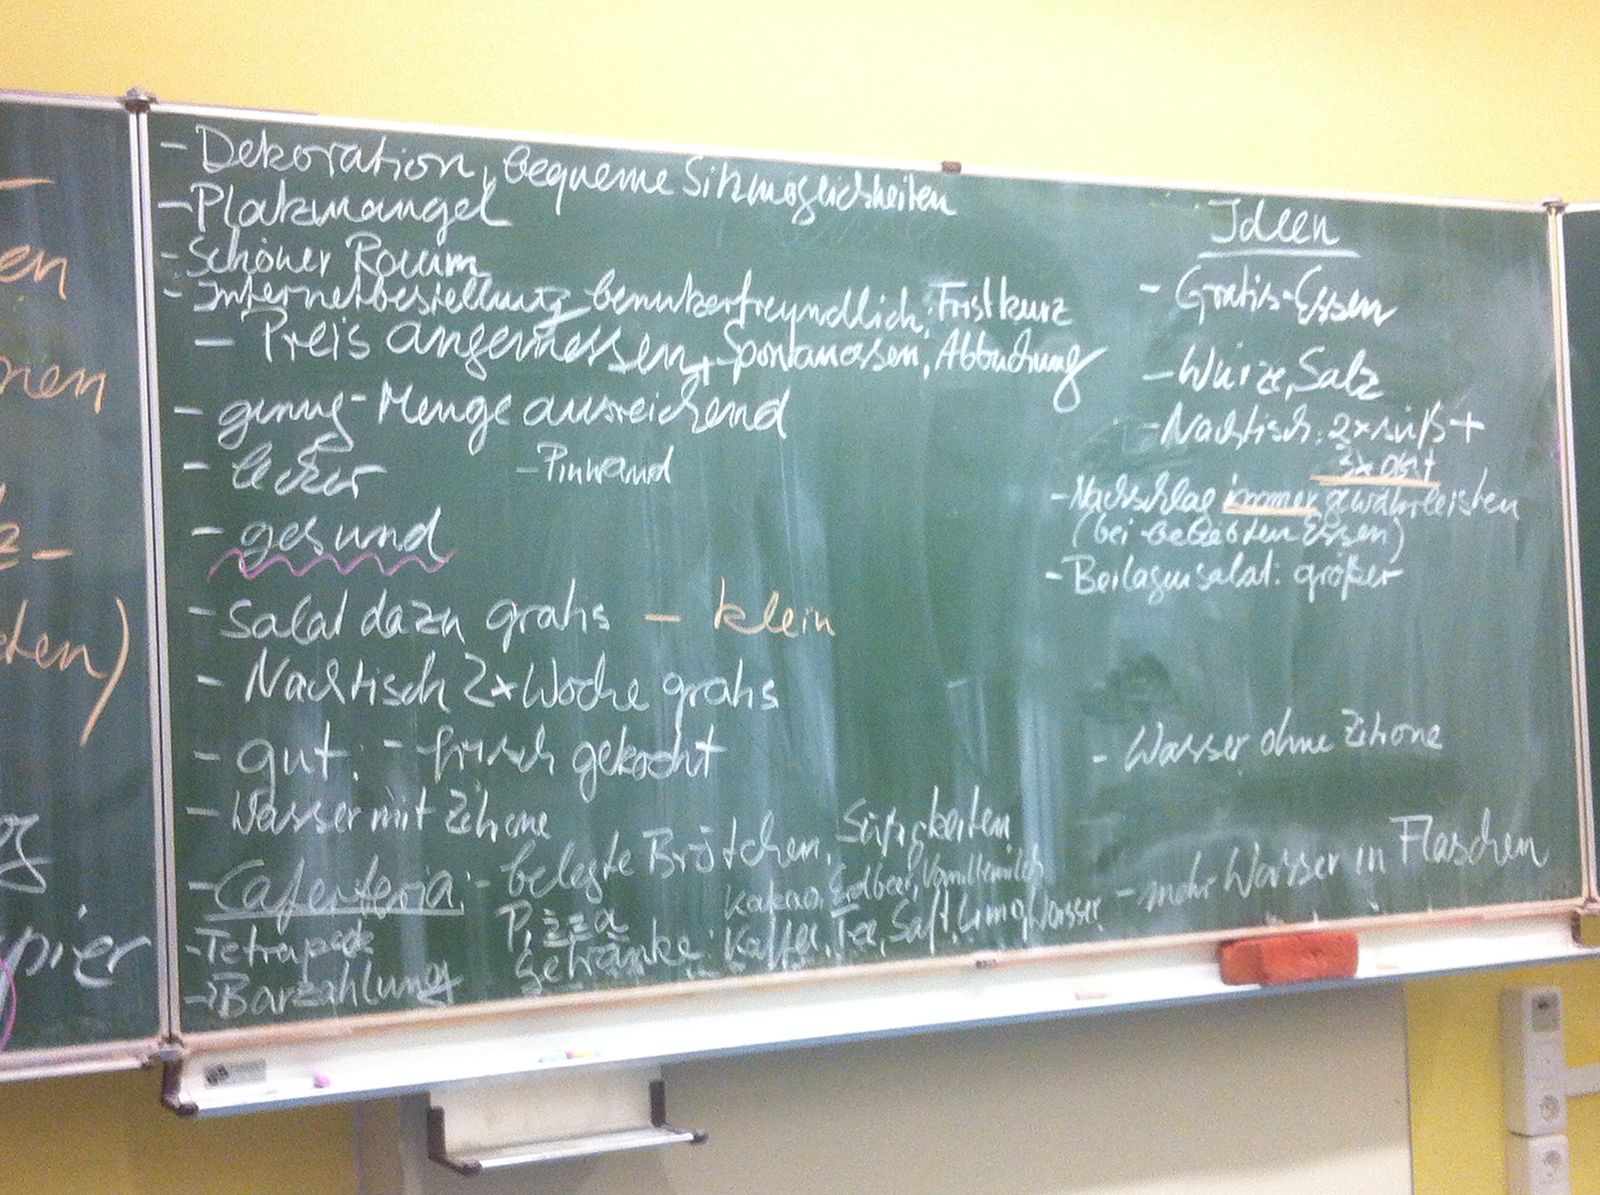 - Dekoration, bequeme Sitzmöglichkeiten
- Platzmangel
- Schöner Raum
- Internetbestellung benutzerfreundlich, Frist kurz
- Preis angemessen, Spontanessen, Abbuchung
- genug - Menge ausreichend
- lecker - Pinwand
- gesund
- Salat dazu gratis - klein
- Nachtisch 2x Woche gratis
- gut: - frisch gekocht
- Wasser mit Zitrone
- Cafeteria: - belegte Brötchen, Süßigkeiten
Pizza Kakao, Erdbeer, Vanillemilch
- Tetrapack
Getränke: Kaffee, Tee, Saft, Limo, Wasser
- Barzahlung
Ideen
- Gratis-Essen
- Würze, Salz
- Nachtisch: 2x süß +
3x Obst
- Nachschlag immer gewährleisten
(bei beliebten Essen)
- Beilagensalat: größer
- Wasser ohne Zitrone
- mehr Wasser in Flaschen
en
nen
ten)
pier